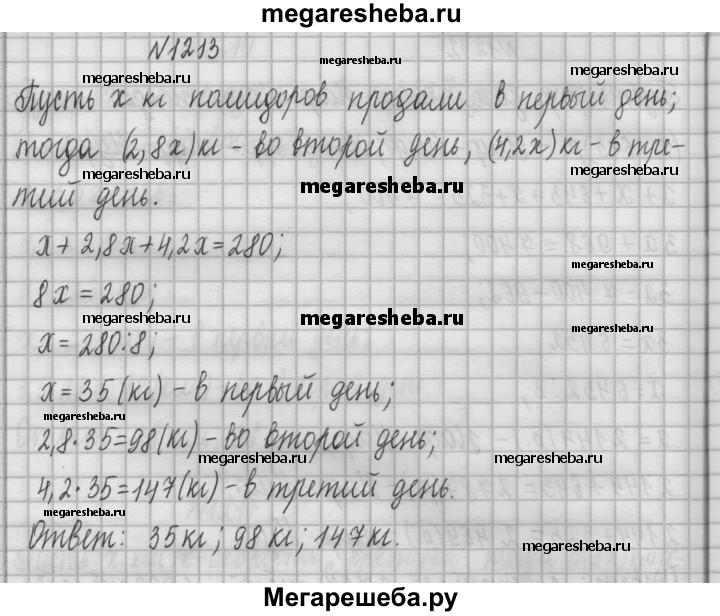 megaresheba.ru
№1213
megaresheba.ru
megaresheba.ru
megaresheba.ru
Пусть x кг помидоров продали в первый день;
тогда (2,8x) кг - во второй день, (4,2x) кг - в тре-
megaresheba.ru
megaresheba.ru
megaresheba.ru
megaresheba.ru
тий день.
x + 2,8x + 4,2x = 280;
megaresheba.ru
megaresheba.ru
8x = 280;
megaresheba.ru
megaresheba.ru
megaresheba.ru
x = 280:8;
x = 35 (кг) - в первый день;
megaresheba.ru
2,8·35=98(кг) - во второй день;
megaresheba.ru
megaresheba.ru
4,2·35=147(кг) - в третий день.
megaresheba.ru
Ответ: 35 кг; 98 кг; 147 кг.
megaresheba.ru
Мегарешеба.ру